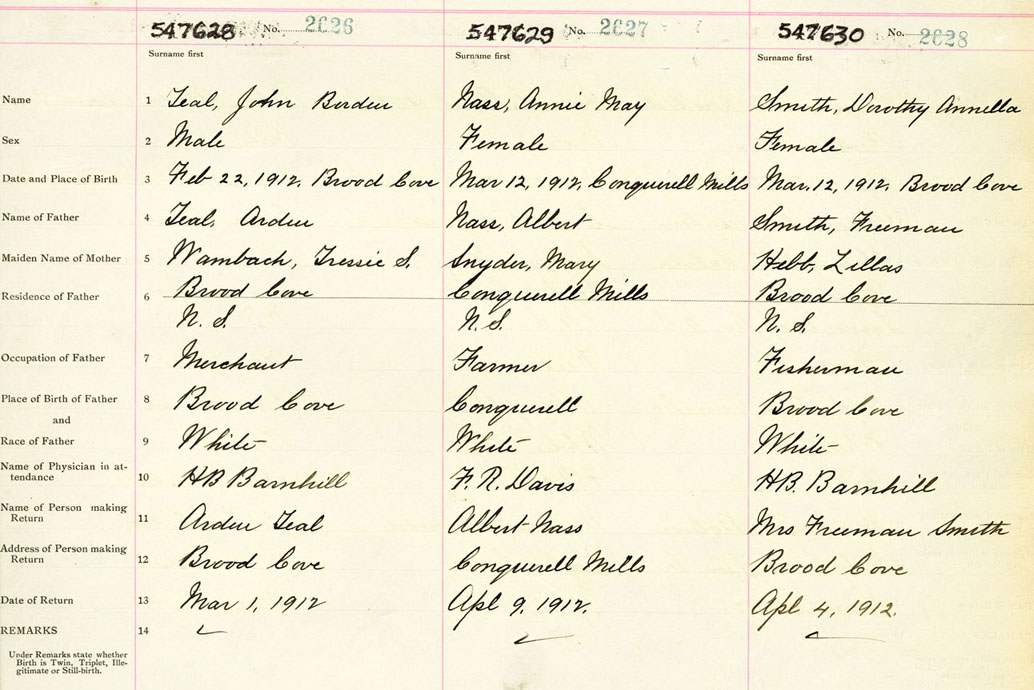 547628 No. 2626 547629 No. 2627 547630 No. 2628
Surname first Surname first Surname first
Name 1 Teal, John Borden Nass, Annie May Smith, Dorothy Annella
Sex 2 Male Female Female
Date and Place of Birth 3 Feb 22, 1912, Brood Cove Mar 12, 1912, Conquerell Mills Mar. 12, 1912, Brood Cove
Name of Father 4 Teal, Arden Nass, Albert Smith, Freeman
Maiden Name of Mother 5 Wambach, Tressie S. Snyder, Mary Hebb, Lillas
Residence of Father 6 Brood Cove Conquerell Mills Brood Cove
N. S. N. S. N. S.
Occupation of Father 7 Merchant Farmer Fisherman
Place of Birth of Father 8 Brood Cove Conquerell Brood Cove
and
Race of Father 9 White White White
Name of Physician in at-
tendance 10 HB Barnhill F. R. Davis HB. Barnhill
Name of Person making
Return 11 Arden Teal Albert Nass Mrs Freeman Smith
Address of Person making
Return 12 Brood Cove Conquerell Mills Brood Cove
Date of Return 13 Mar 1, 1912 Apl 9, 1912. Apl 4, 1912.
REMARKS 14
Under Remarks state whether
Birth is Twin, Triplet, Ille-
gitimate or Still-birth.